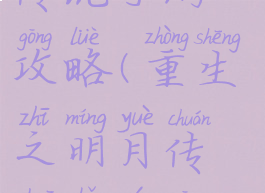 gōng lüè zhòng shēng
攻略(重生
zhī míng yuè chuán
之明月传